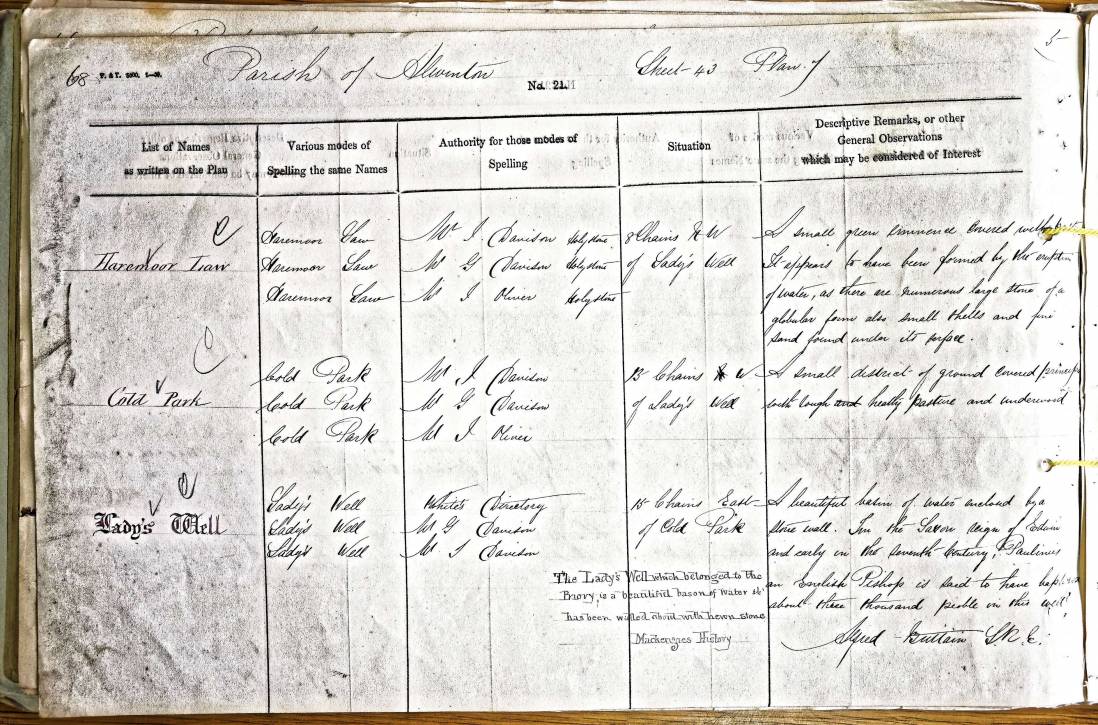 68 Parish of Alwinton Sheet 43 Plan. 7 5
No. 21.
List of Names
as written on the Plan
Various modes of
Spelling the same Names
Authority for those modes of
Spelling
Situation
Descriptive Remarks, or other
General Observations
which may be considered of Interest
Haremoor Law
Haremoor Law
Haremoor Law
Haremoor Law
Mr I Davison Holystone
Mr G Davison Holystone
Mr I Oliver Holystone
8 Chains N W
of Lady's Well
A small green eminence covered with
It appears to have been formed by the eruption
of water, as there are numerous large stone of a
globular form also small shells and fine
sand found under its surface.
Cold Park
Cold Park
Cold Park
Cold Park
Mr I Davison
Mr G Davison
Mr I Oliver
15 Chains W
of Lady's Well
A small district of ground covered
with rough and heathy pasture and underwood
Lady's Well
Lady's Well
Lady's Well
Lady's Well
White's Directory
Mr G Davison
Mr I Davison
15 Chains East
of Cold Park
A beautiful basin of water enclosed by a
stone wall. In the Saxon reign of Edwin
and early in the seventh Century, Paulinus
an English Bishop is said to have baptised
about three thousand people in this well
The Lady's Well which belonged to the
Priory, is a beautiful bason of water &c
has been walled about with hewn stone
Mackenzies History
Alfred Brittain S.R.E.